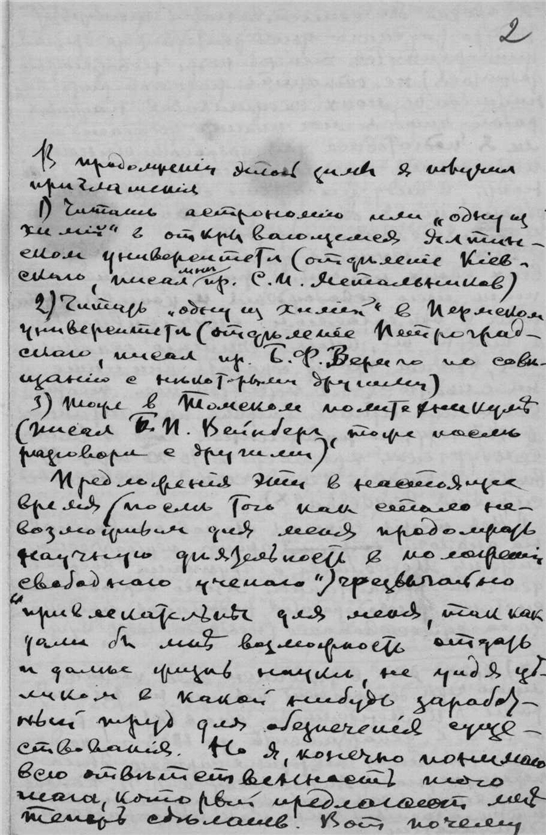 2
В продолжении этой зимы я получил
приглашения
1) Читать астрономию или „одну из
химій" в открывающемся Ялтин-
ском университети (отделение Кіев-
скаго, писал мни пр. С. И. Метальников)
2) Читать „одну из химій" в Пермском
университети (отделение Петроград-
скаго, писал пр. Б. Ф. Вериго по сови-
щанію с никоторыми другими)
3) тоже в Томском политехникумѣ
(писал Б. П. Вейнберг, тоже послѣ
разговора с другими).
Предложения эти в настоящее
время (послѣ того как стало не-
возможным для меня продолжать
научную дѣятельность в положеніи
„свободнаго ученаго") чрезвычайно
привлекательны для меня, так как
дали бы мнѣ возможность отдать
и дальше жизнь науки, не уйдя цѣ-
ликом в какой нибудь заработ-
ный труд для обезпеченія суще-
ствованія. Но я, конечно понимаю
всю отвѣтственность того
шага, который предлагают мнѣ
теперь сдѣлать. Вот почему